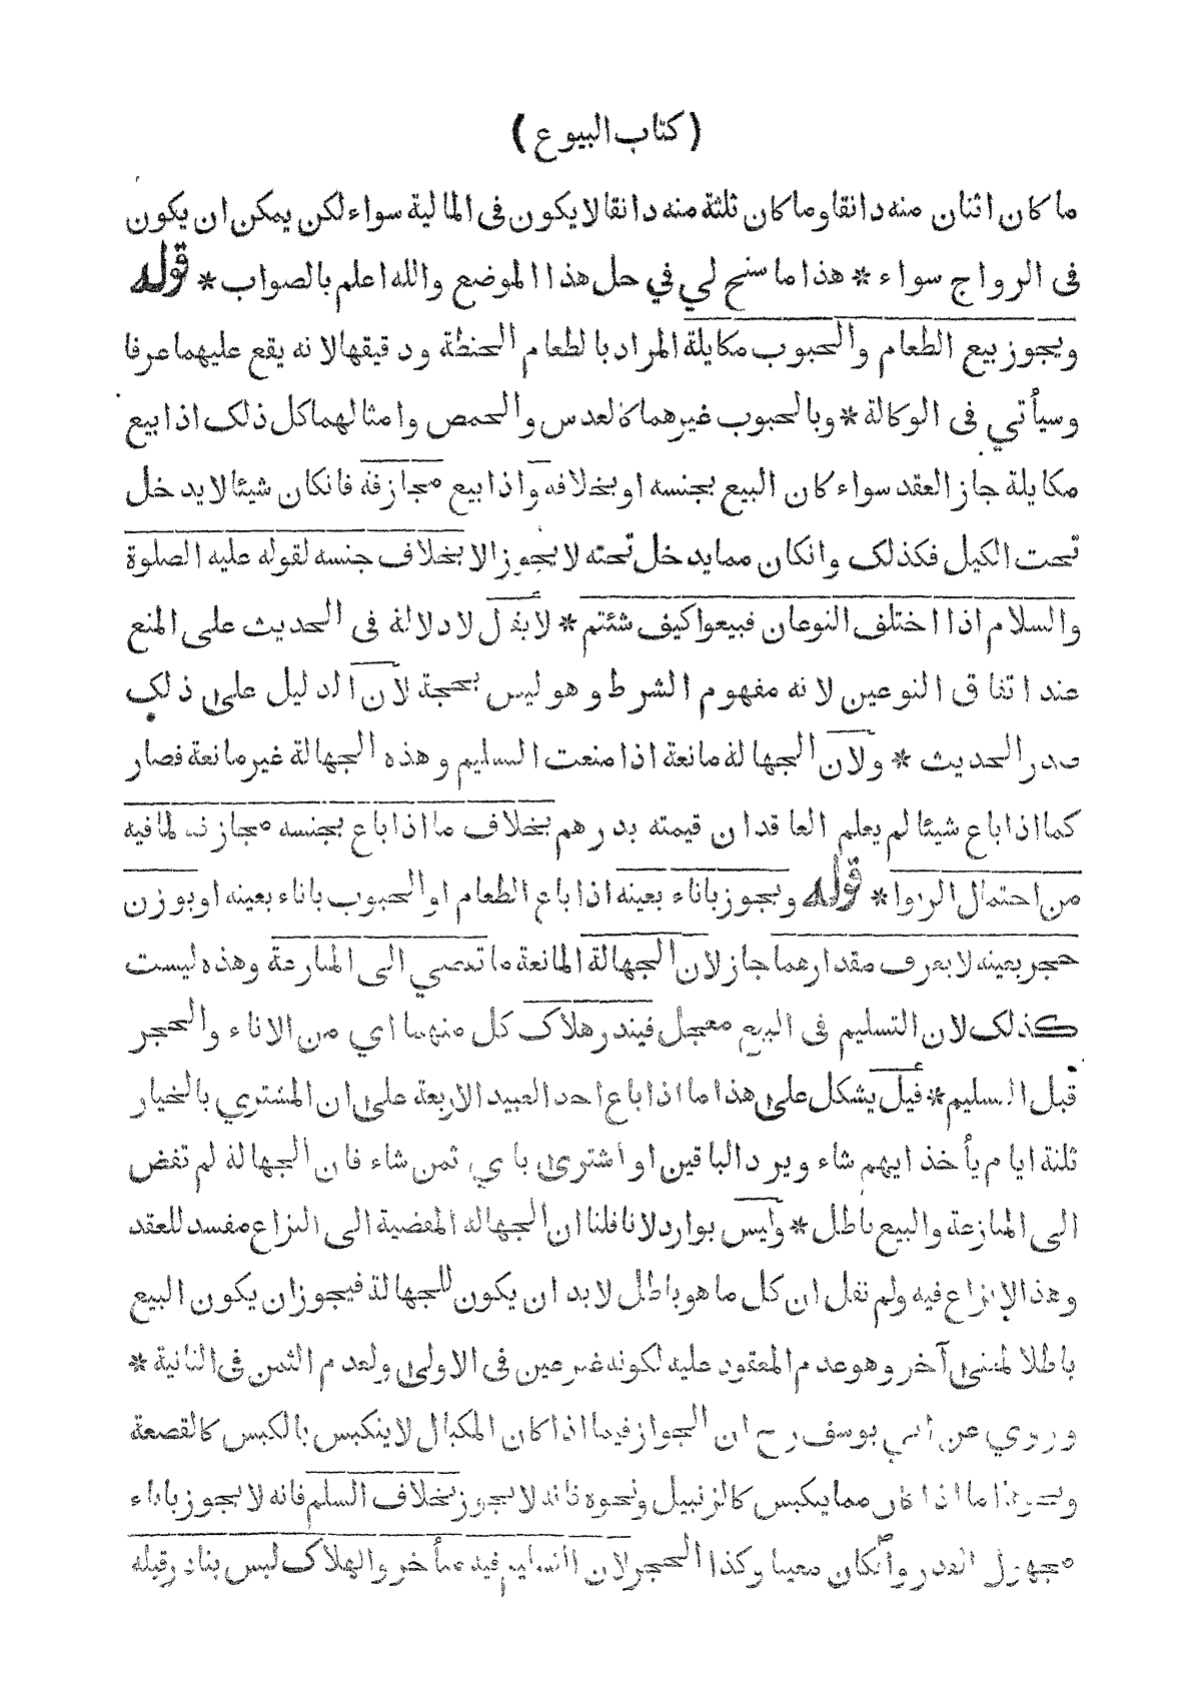 ( كتاب البيوع )
ما كان اثنان منه دانقا وما كان ثلثة منه دانقا لا يكون فى المالية سواء لكن يمكن ان يكون
فى الرواج سواء * هذا ما سنح لي في حل هذا الموضع والله اعلم بالصواب * قوله
ويجوز بيع الطعام والحبوب مكايلة المراد بالطعام الحنطة ودقيقها لانه يقع عليهما عرفا
وسيأتي فى الوكالة * وبالحبوب غيرهما كالعدس والحمص وامثالهما كل ذلك اذا بيع
مكايلة جاز العقد سواء كان البيع بجنسه او بخلافه واذا بيع مجازفة فانكان شيئا لا يدخل
تحت الكيل فكذلك وانكان مما يدخل تحته لا يجوز الا بخلاف جنسه لقوله عليه الصلوة
والسلام اذا اختلف النوعان فبيعوا كيف شئتم * لا يقل لا دلالة فى الحديث على المنع
عند اتفاق النوعين لانه مفهوم الشرط وهو ليس بحجة لان الدليل على ذلك
صدر الحديث * ولان الجهالة مانعة اذا منعت التسليم وهذه الجهالة غير مانعة فصار
كما اذا باع شيئا لم يعلم العاقدان قيمته بدرهم بخلاف ما اذا باع بجنسه مجازفة لما فيه
من احتمال الربوا * قوله ويجوز باناء بعينه اذا باع الطعام او الحبوب باناء بعينه او بوزن
حجر بعينه لا يعرف مقدارهما جاز لان الجهالة المانعة ما تفضي الى المنازعة وهذه ليست
كذلك لان التسليم فى البيع معجل فيندر هلاك كل منهما اي من الاناء والحجر
قبل التسليم * قيل يشكل على هذا ما اذا باع احد العبيد الاربعة على ان المشتري بالخيار
ثلثة ايام يأخذ ايهم شاء ويرد الباقين او اشترى باي ثمن شاء فان الجهالة لم تفض
الى المنازعة والبيع باطل * وليس بوارد لانا قلنا ان الجهالة المفضية الى النزاع مفسد للعقد
وهذا لا نزاع فيه ولم نقل ان كل ما هو باطل لا بد ان يكون للجهالة فيجوز ان يكون البيع
باطلا لمعنى آخر وهو عدم المعقود عليه لكونه غير عين فى الاولى ولعدم الثمن فى الثانية *
وروي عن ابي يوسف رح ان الجواز فيما اذا كان المكيال لا ينكبس بالكبس كالقصعة
ونحوها اما اذا كان مما ينكبس كالزنبيل ونحوه فانه لا يجوز بخلاف السلم فانه لا يجوز باناء
مجهول القدر وانكان معينا وكذا الحجر لان التسليم فيه متأخر والهلاك ليس بنادر قبله